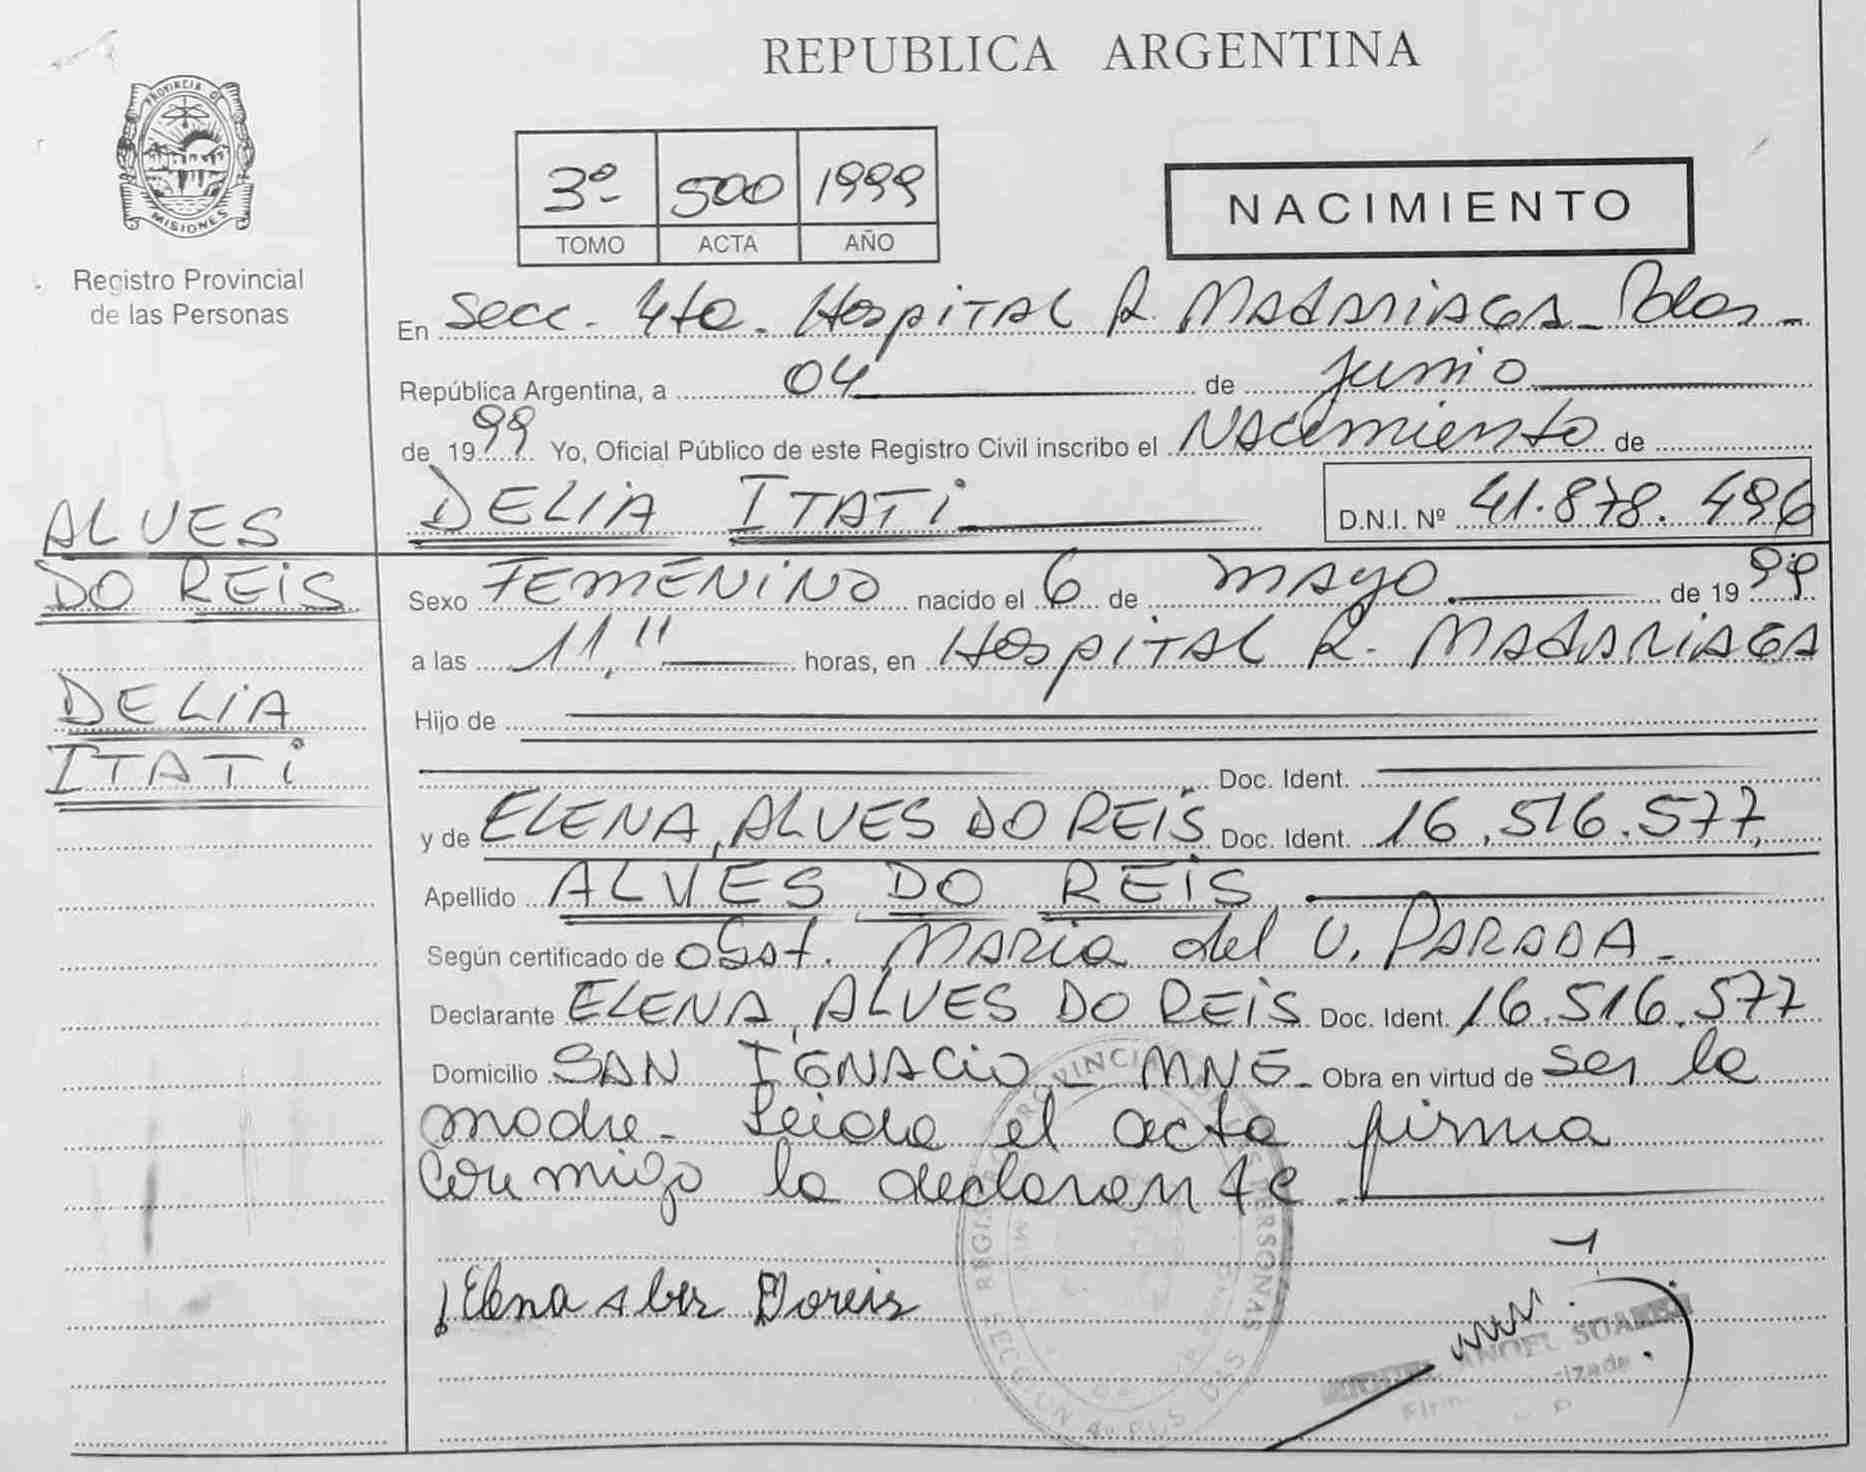 REPUBLICA ARGENTINA
PROVINCIA DE
MISIONES
Registro Provincial
de las Personas
3º- 500 1999
TOMO ACTA AÑO
NACIMIENTO
En Secc. 4ta. Hospital R. Madariaga - Pdas -
República Argentina, a 04 de Junio
de 1999 Yo, Oficial Público de este Registro Civil inscribo el Nacimiento de
DELIA ITATI D.N.I. Nº 41.878.496
ALVES
DO REIS
DELIA
ITATI
Sexo FEMENINO nacido el 6 de mayo de 1999
a las 11,11 horas, en Hospital R. MADARIAGA
Hijo de
Doc. Ident.
y de ELENA, ALVES DO REIS Doc. Ident. 16.516.577,
Apellido ALVES DO REIS
Según certificado de obst. Maria del V. PARADA -
Declarante ELENA, ALVES DO REIS Doc. Ident. 16.516.577
Domicilio SAN IGNACIO - MNES - Obra en virtud de ser la
madre - Leida el acta firma
conmigo la declarante.
Elena alves Doreis
ANGEL SUAREZ